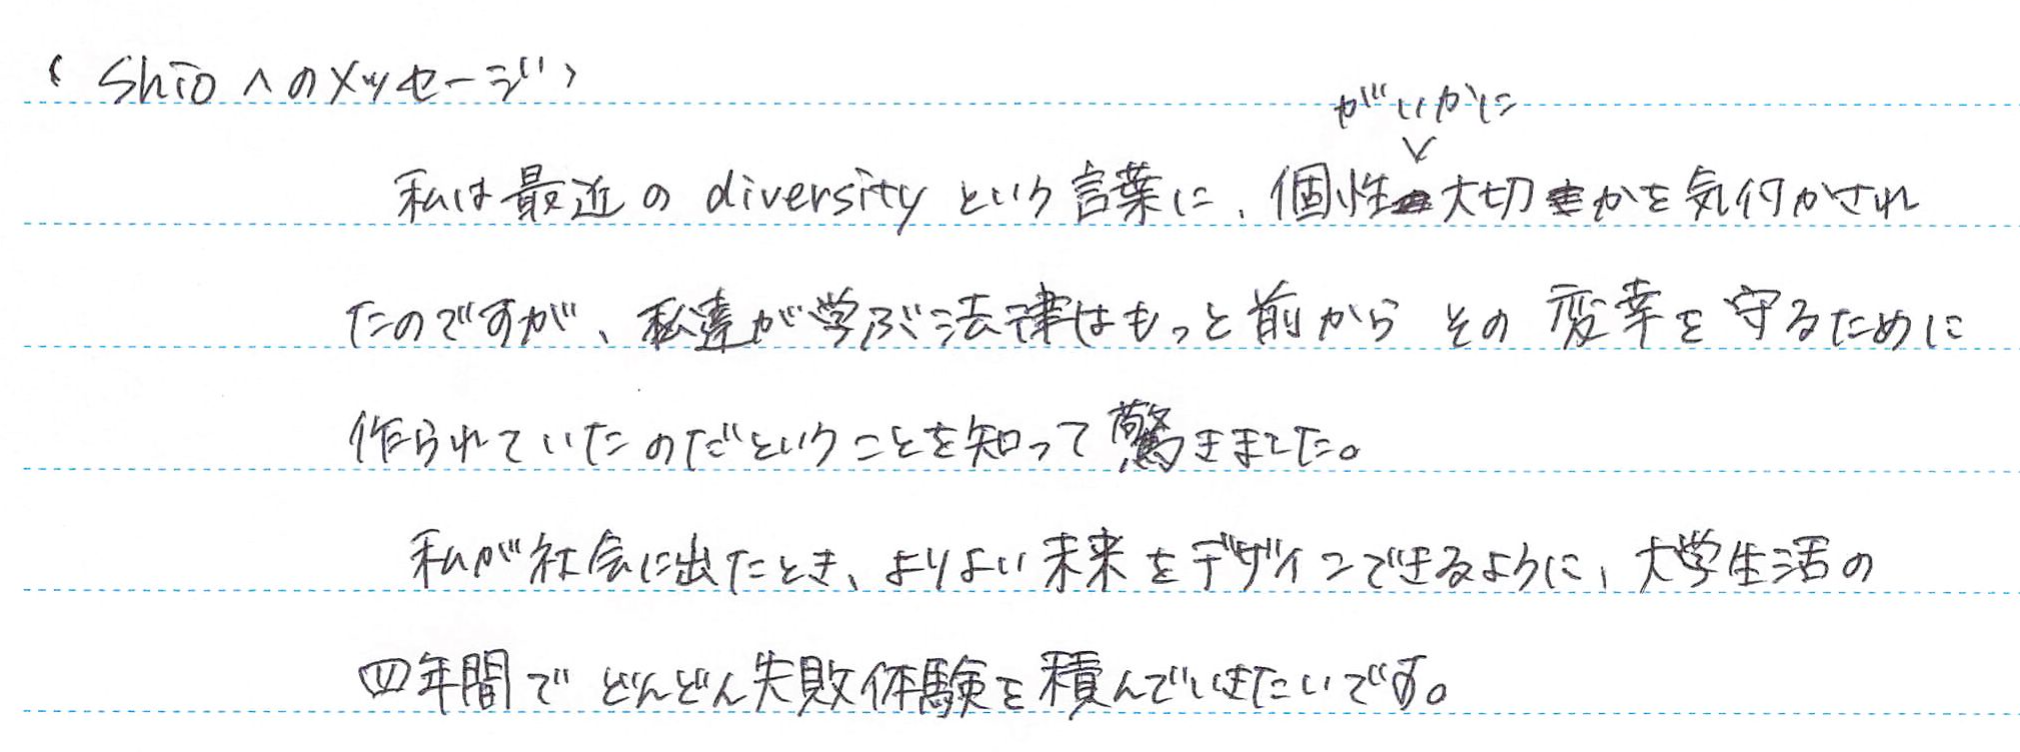 〈Shioへのメッセージ〉
がいかに
私は最近のdiversityという言葉に、個性大切かを気付かされ
たのですが、私達が学ぶ法律はもっと前からその変幸を守るために
作られていたのだということを知って驚きました。
私が社会に出たとき、よりよい未来をデザインできるように、大学生活の
四年間でどんどん失敗体験を積んでいきたいです。